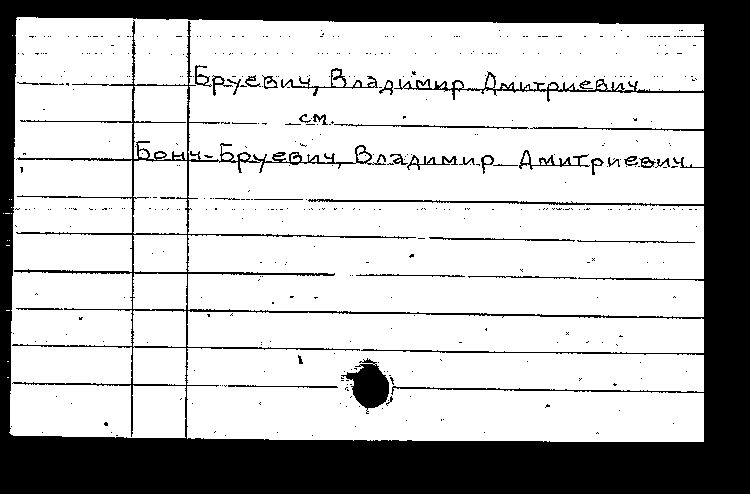 Бруевич, Владимир Дмитриевич
см.
Бонч-Бруевич, Владимир Дмитриевич.